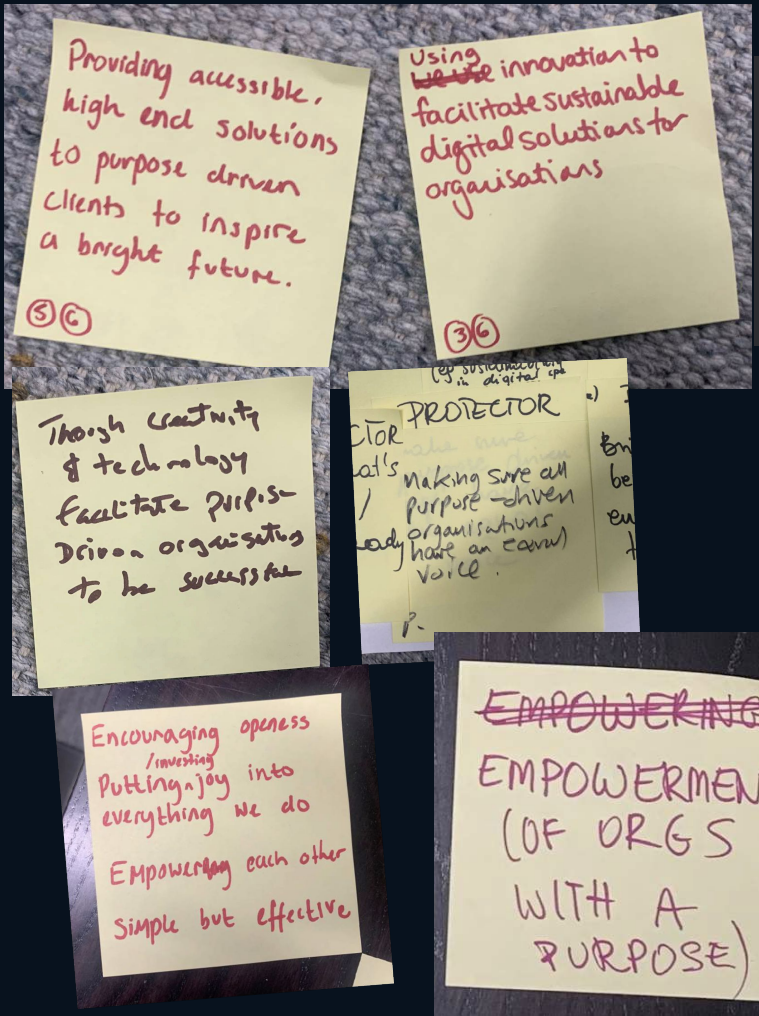 Providing accessible,
high end solutions
to purpose driven
clients to inspire
a bright future.
5 6
Using
we use innovation to
facilitate sustainable
digital solutions for
organisations
3 6
Though creativity
& technology
facilitate purpose
Driven organisations
to be successful
in digital
PROTECTOR
CTOR
at's
Making sure all
purpose-driven
organisations
have an equal
voice.
ady
P.
be
Encouraging openess
/investing
Putting ^ joy into
everything we do
Empowering each other
Simple but effective
EMPOWERING
EMPOWERMEN
(OF ORGS
WITH A
PURPOSE)